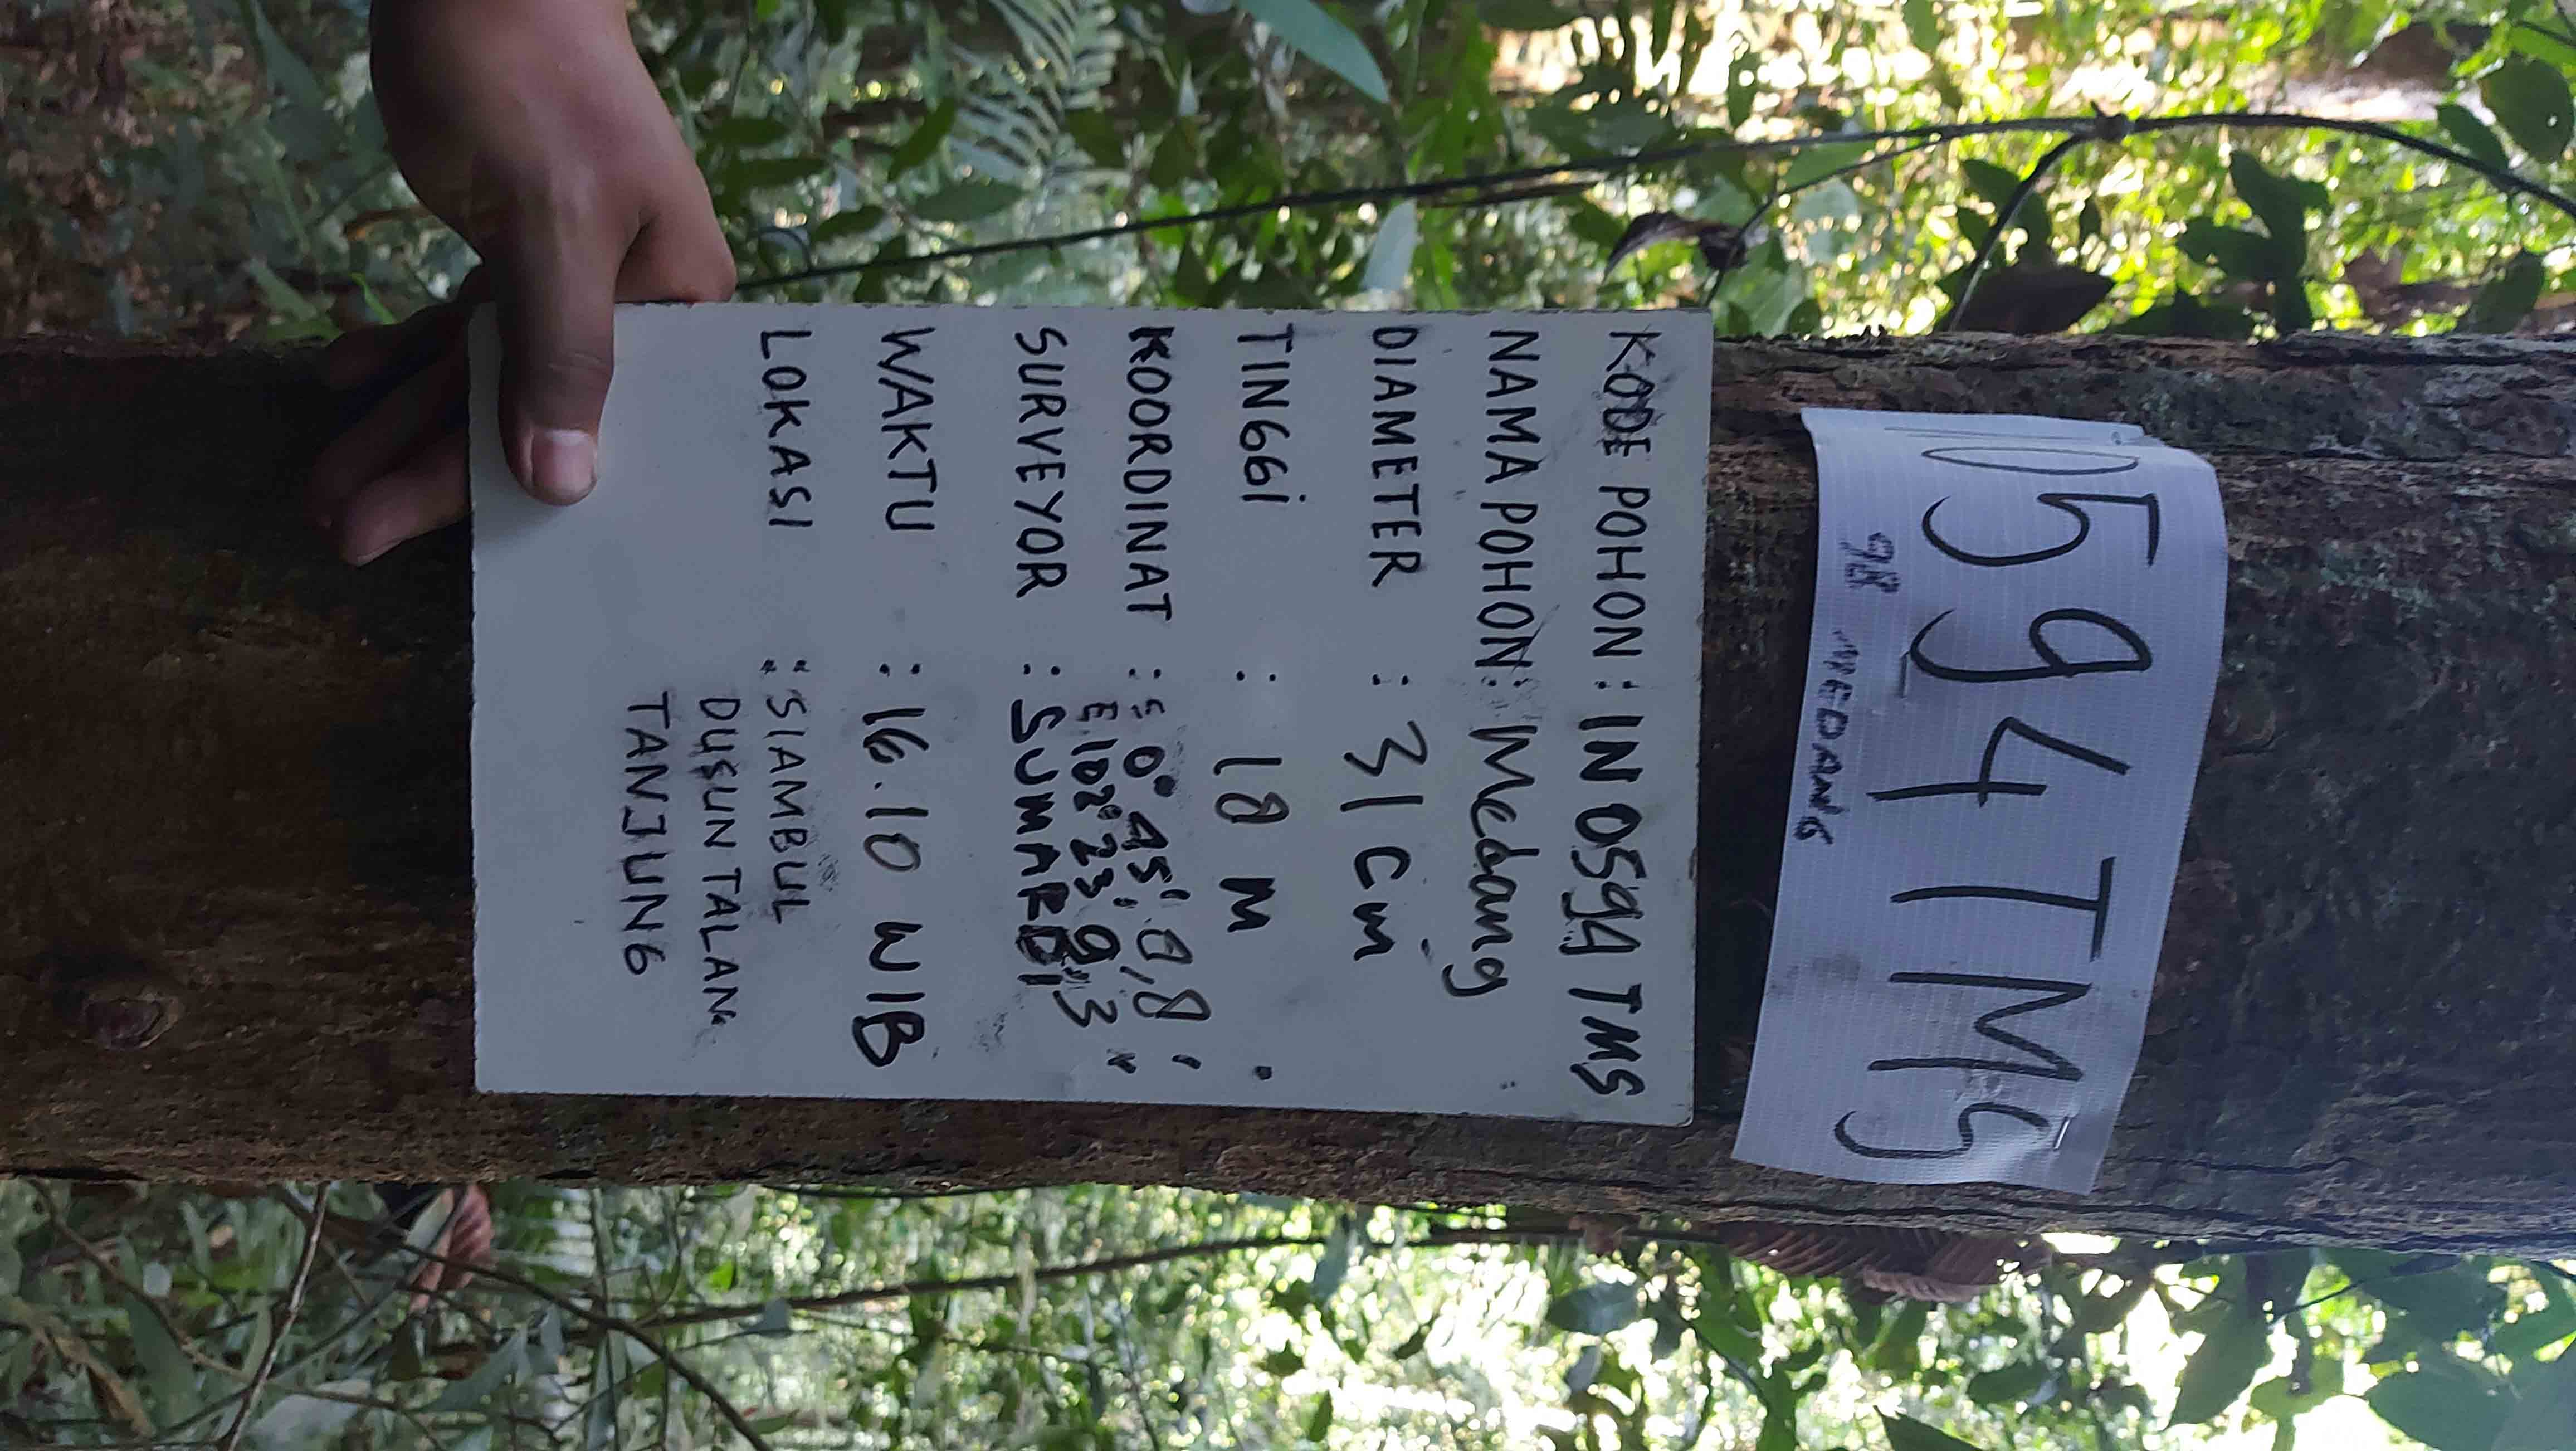 0594TMS
98 MEDANG
KODE POHON : IN 0594 TMS
NAMA POHON : Medang
DIAMETER : 31 cm
TINGGI : 18 M
KOORDINAT : S 0° 45' 0,8"
E 102° 23' 9,3"
SURVEYOR : SUMARDI
WAKTU : 16.10 WIB
LOKASI : SIAMBUL
DUSUN TALANG
TANJUNG